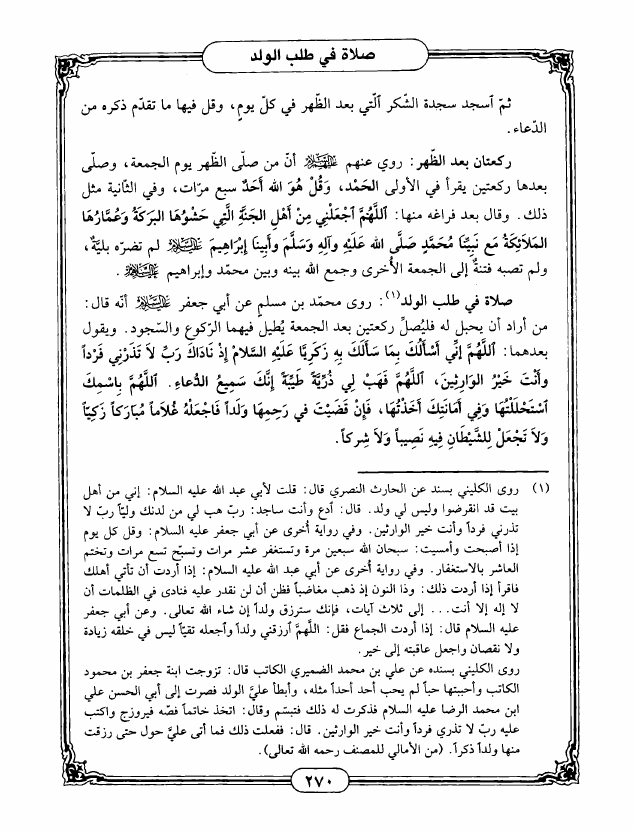 صلاة في طلب الولد
ثمّ آسجد سجدة الشكر ٱلّتي بعد الظّهر في كلّ يومٍ، وقل فيها ما تقدّم ذكره من
الدّعاء.
ركعتان بعد الظّهر: روي عنهم عليهم السلام أنّ من صلّى الظّهر يوم الجمعة، وصلّى
بعدها ركعتين يقرأ في الأولى الحَمْد، وَقُلْ هُوَ الله أَحَدٌ سبع مرّات، وفي الثّانية مثل
ذلك. وقال بعد فراغه منها: ٱللَّهُمَّ ٱجْعَلْنِي مِنْ أَهْلِ الجَنَّةِ الَّتِي حَشْوُهَا البَرَكَةُ وَعُمَّارُهَا
المَلَائِكَةُ مَعَ نَبِيِّنَا مُحَمَّدٍ صَلَّى الله عَلَيْهِ وَآلِهِ وَسَلَّمَ وَأَبِينَا إِبْرَاهِيمَ عليه السلام لم تضرّه بليّة،
ولم تصبه فتنةٌ إلى الجمعة الأُخرى وجمع الله بينه وبين محمّد وإبراهيم عليه السلام.
صلاة في طلب الولد(١): روى محمّد بن مسلم عن أبي جعفر عليه السلام أنّه قال:
من أراد أن يحبل له فليُصلِّ ركعتين بعد الجمعة يُطيل فيهما الرّكوع والسّجود. ويقول
بعدهما: ٱللَّهُمَّ إِنِّي أَسْأَلُكَ بِمَا سَأَلَكَ بِهِ زَكَرِيَّا عَلَيْهِ السَّلامُ إِذْ نَادَاكَ رَبِّ لاَ تَذَرْنِي فَرْداً
وَأَنْتَ خَيْرُ الوَارِثِينَ، ٱللَّهُمَّ فَهَبْ لِي ذُرِّيَّةً طَيِّبَةً إِنَّكَ سَمِيعُ الدُّعَاءِ. ٱللَّهُمَّ بِاسْمِكَ
ٱسْتَحْلَلْتُهَا وَفِي أَمَانَتِكَ أَخَذْتُهَا، فَإِنْ قَضَيْتَ في رَحِمِهَا وَلَداً فَاجْعَلْهُ غُلاَماً مُبَارَكاً زَكِيّاً
وَلاَ تَجْعَلْ لِلشَّيْطَانِ فِيهِ نَصِيباً وَلاَ شِركاً.
(١) روى الكليني بسند عن الحارث النصري قال: قلت لأبي عبد الله عليه السلام: إني من أهل
بيت قد انقرضوا وليس لي ولد. قال: آدع وأنت ساجد: ربّ هب لي من لدنك وليّاً ربّ لا
تذرني فرداً وأنت خير الوارثين. وفي رواية أُخرى عن أبي جعفر عليه السلام: وقل كل يوم
إذا أصبحت وأمسيت: سبحان الله سبعين مرة وتستغفر عشر مرات وتسبّح تسع مرات وتختم
العاشر بالاستغفار. وفي رواية أُخرى عن أبي عبد الله عليه السلام: إذا أردت أن تأتي أهلك
فاقرأ إذا أردت ذلك: وذا النون إذ ذهب مغاضباً فظن أن لن نقدر عليه فنادى في الظلمات أن
لا إله إلا أنت... إلى ثلاث آيات، فإنك سترزق ولداً إن شاء الله تعالى. وعن أبي جعفر
عليه السلام قال: إذا أردت الجماع فقل: اللّهمّ آرزقني ولداً وأجعله تقيّاً ليس في خلقه زيادة
ولا نقصان واجعل عاقبته إلى خير.
روى الكليني بسنده عن علي بن محمد الصّميري الكاتب قال: تزوجت ابنة جعفر بن محمود
الكاتب وأحببتها حباً لم يحب أحد أحداً مثله، وأبطأ عليَّ الولد فصرت إلى أبي الحسن علي
ابن محمد الرضا عليه السلام فذكرت له ذلك فتبسّم وقال: اتخذ خاتماً فصّه فيروزج واكتب
عليه ربّ لا تذري فرداً وأنت خير الوارثين. قال: ففعلت ذلك فما أتى عليَّ حول حتى رزقت
منها ولداً ذكراً. (من الأمالي للمصنف رحمه الله تعالى).
٢٧٠